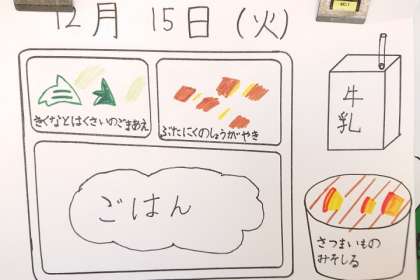 12月 15日 (火)
きくなとはくさいのごまあえ
ぶたにくのしょうがやき
牛
乳
ごはん
さつまいもの
みそしる